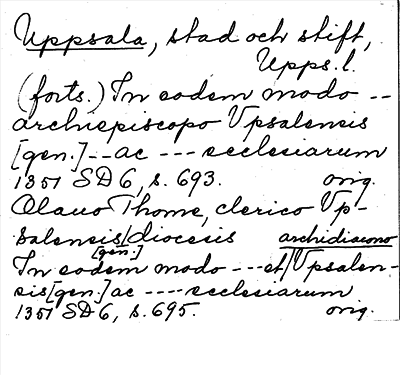 Uppsala, stad och stift,
Upps.l.
(forts.) In eodem modo --
archiepiscopo Vpsalensis
[gen.] -- ac --- ecclesiarum
1351 SD 6, s. 693. orig.
Olauo Thome, clerico Vp-
salensis [gen.] diocesis
In eodem modo --- et archidiacono Vpsalen-
sis [gen.] ac ---- ecclesiarum
1351 SD 6, s. 695. orig.